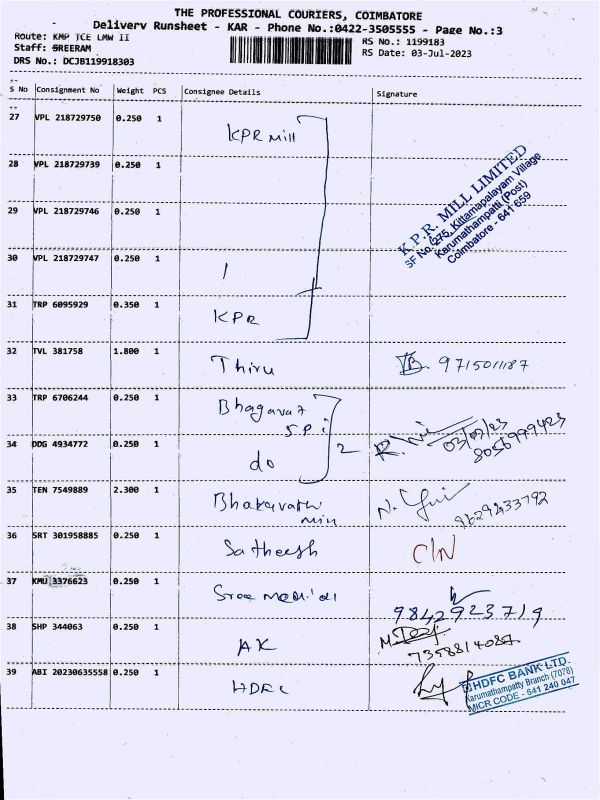 THE PROFESSIONAL COURIERS, COIMBATORE
Deliverv Runsheet - KAR - Phone No.:0422-3505555 - Page No.:3
Route: KMP TCE LMW II
RS No.: 1199183
Staff: SREERAM
RS Date: 03-Jul-2023
DRS No.: DCJB119918303
S No Consignment No Weight PCS Consignee Details Signature
27 VPL 218729750 0.250 1 KPR Mill
28 VPL 218729739 0.250 1
K.P.R. MILL LIMITED
SF No.:275, Kittamapalayam Village
Karumathampatti (Post)
Coimbatore - 641 659
29 VPL 218729746 0.250 1
30 VPL 218729747 0.250 1
31 TRP 6095929 0.350 1 KPR
32 TVL 381758 1.800 1 Thiru 9715011187
33 TRP 6706244 0.250 1 Bhagavat
03/07/23
8056999423
34 DDG 4934772 0.250 1 do 2
35 TEN 7549889 2.300 1
36 SRT 301958885 0.250 1 Satheesh C/N
37 KMU 3376623 0.250 1 Sree
9842923719
38 SHP 344063 0.250 1 AK
7358814087
39 ABI 20230635558 0.250 1 HDFC
HDFC BANK LTD.
Karumathampatty Branch (7078)
MICR CODE - 641 240 047